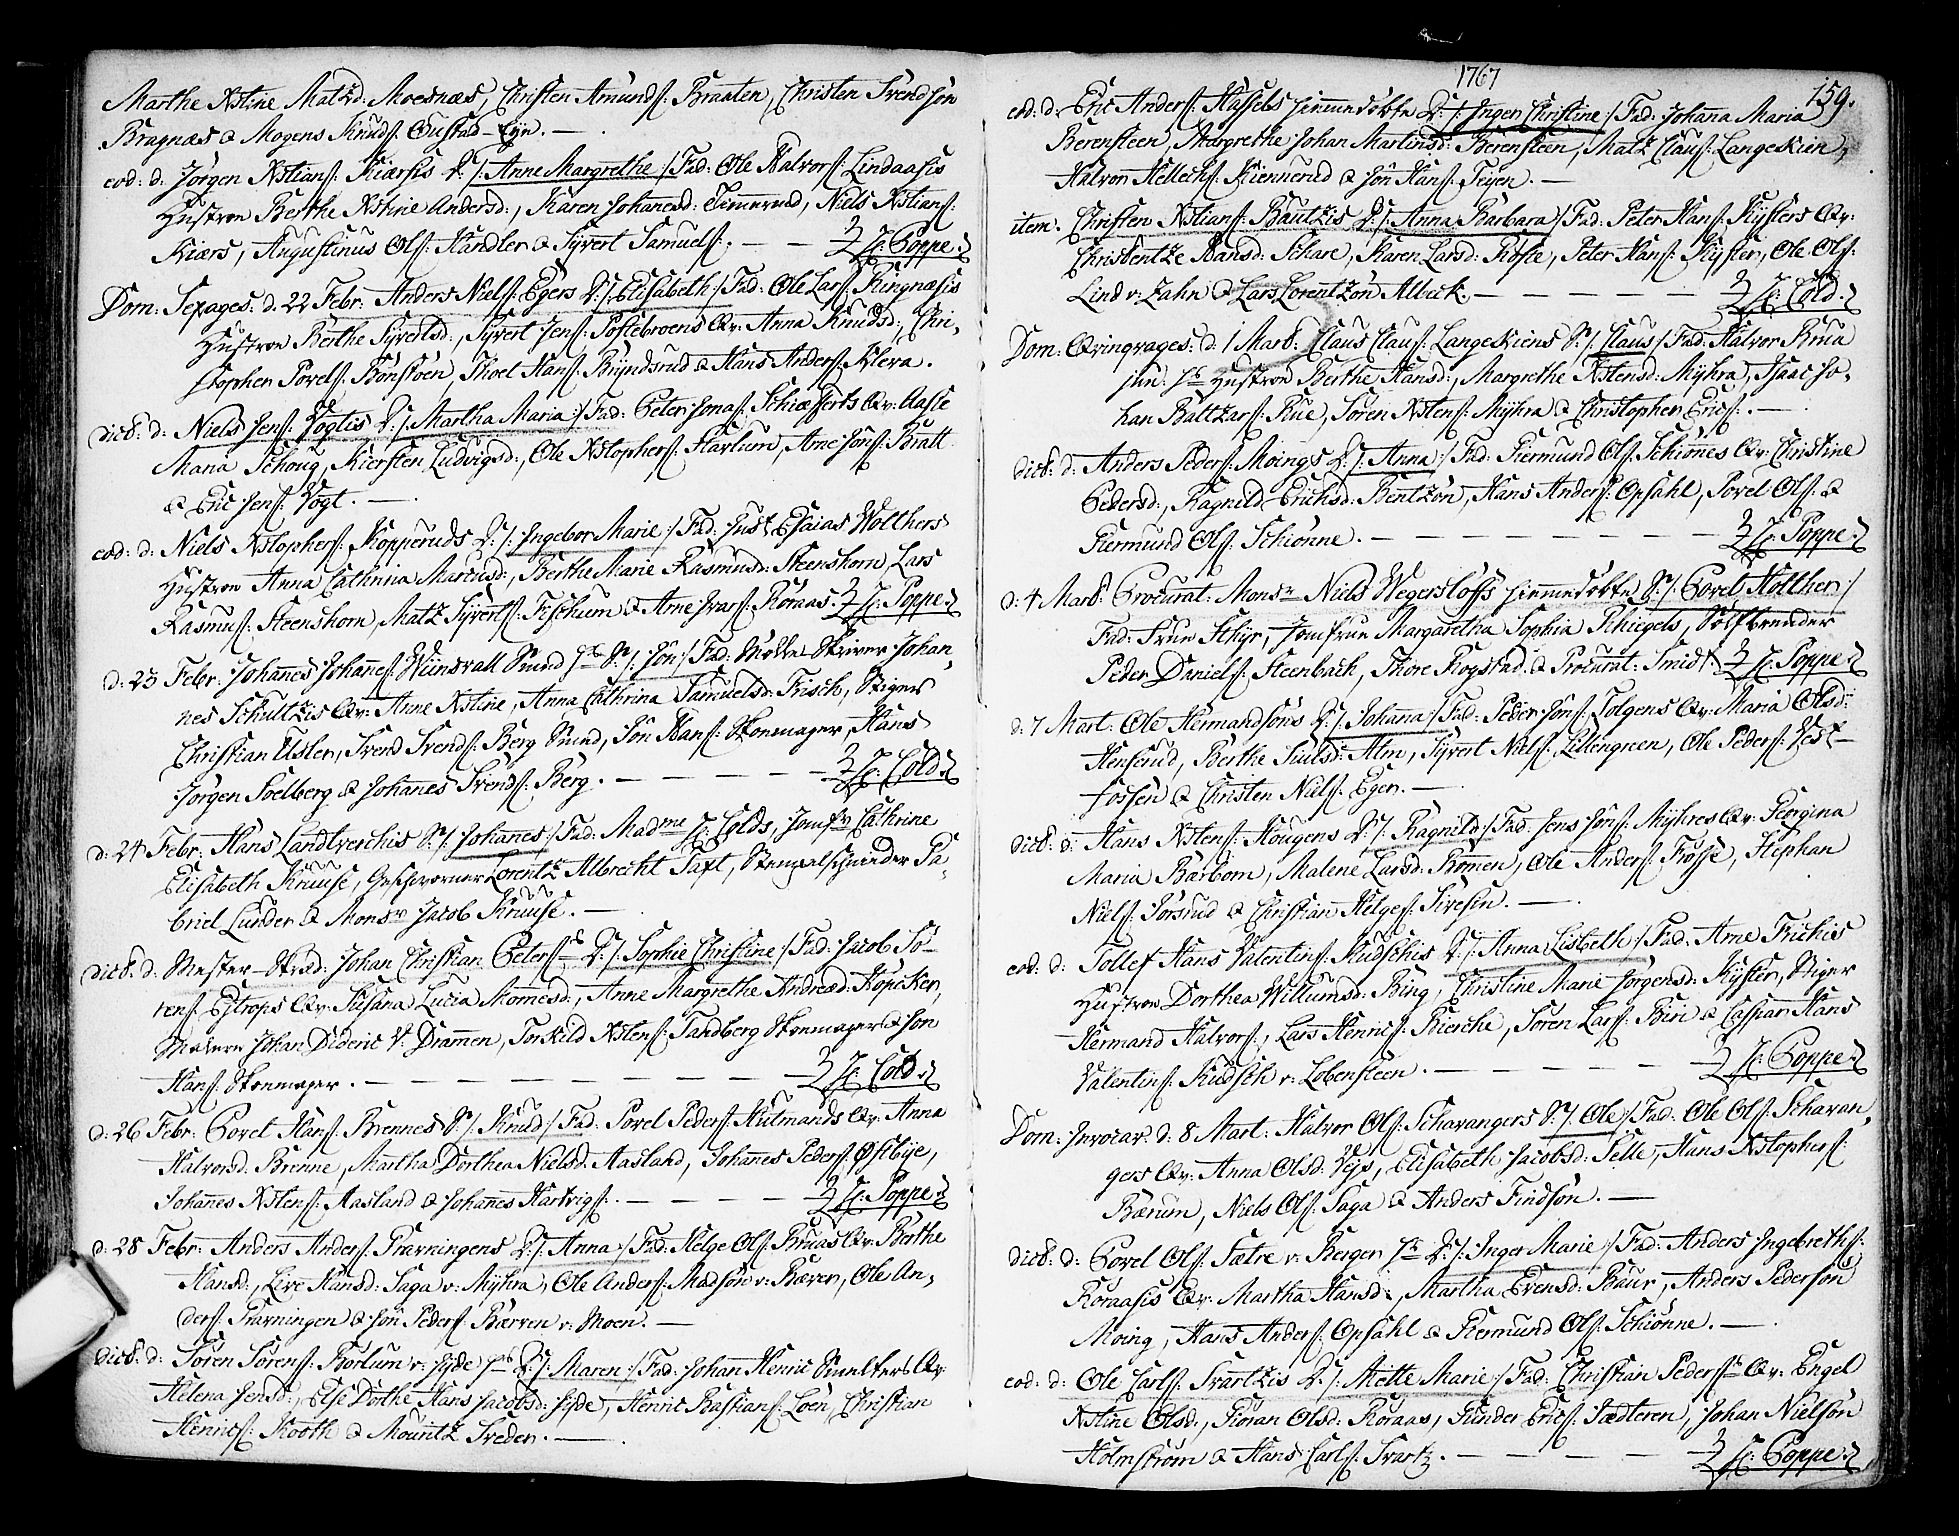 Marthe Xstine Matzd: Moesnæs, Christen Amundſ: Braaten, Christen Svendsön
Bragnæs & Mogens Knudſ: Gustad-Eyn. —
eod: d: Jörgen Xstianſ: Kiærsis D: /: Anne Margrethe :/ Fad: Ole Halvorſ: Lindaasis
Hustroe Berthe Xstine Andersd:, Karen Johanesd: Timerud, Niels Xstianſ:
Kiærs, Augustinus Olſ: Handler & Syvert Samuelſ: — — H: Poppe.
Dom: Sexages: d. 22 Febr: Anders Nielſ: Egers D: /: Elisabeth :/ Fad: Ole Larſ: Ringnæsis
Hustroe Berthe Syvertsd:, Syvert Jenſ: Postebroens Qv: Anna Knudsd:, Chri-
stopher Povelſ: Bönstöen, Thoel Hanſ: Ryndsrud & Hans Anderſ: Klera.
dicto: d: Niels Jenſ: Vogtis D: /: Martha Maria :/ Fad: Peter Jonaſ: Schiæfferts Qv: Aasle
Maria Schoug, Kiersten Ludvigsd:, Ole Xstopherſ: Harlum, Arne Jönſ: Bratt
& Eric Jenſ: Vogt. —
eod: d: Niels Xstopherſ: Kopperuds D: /: Ingebor Marie :/ Fad: Just Esaias Wolthers
Hustroe Anna Cathrina Marcusd:, Berthe Marie Rasmusd: Steenshorn, Lars
Rasmuſ: Steenshorn, Matz Syvertſ: Fischum & Arne Ivarſ: Röraas. H: Poppe.
d: 23 Febr: Johannes Johaneſ: Wiinsvall Smed S: /: Jön :/ Fad: Mölle Skriver Johan-
nes Schultzis Qv: Anne Xstine, Anna Cathrina Samuelsd: Frisch, Stiger
Christian Usler, Svend Svendſ: Berg Smed, Jön Hanſ: Skomager, Hans
Jörgen Soelberg & Johanes Svendſ: Berg. — — — H: Cold.
d: 24 Febr: Hans Landtverchis S: /: Johanes :/ Fad: Madme H: Colds, Jomfr Cathrine
Elisabeth Kruuse, Geschworner Lorentz Albrecht Taft, Stempelschneider Ga-
briel Lunder & Monsr Jacob Kruuse. —
dicto: d: Mester-Svend: Johan Christian Peterſ: D: /: Sophie Christine :/ Fad: Jacob Sö-
renſ: Estrops Qv: Susana Lucia Momesd:, Anne Margrethe Andreæd: Köpcker,
Maler Johan Dideric v: Dramen, Torkild Xstenſ: Tandberg Skomager & Jon
Hanſ: Skomager. — — — — — H: Cold.
d: 26 Febr: Povel Hanſ: Brennes S: /: Knud :/ Fad: Povel Pederſ: Hulmands Qv: Anna
Halvorsd: Brenne, Martha Dorthea Nielsd: Aasland, Johannes Pederſ: Østbye,
Johannes Xstenſ: Aasland & Johannes Hartvigſ: — — — H: Poppe.
d: 28 Febr: Anders Anderſ: Pravningens D: /: Anna :/ Fad: Helge Olſ: Bruas Qv: Berthe
Hansd:, Live Hansd: Saga v: Myhra, Ole Anderſ: Madsön v: Bæver, Ole An-
derſ: Pravningen & Jön Pederſ: Bærren v: Moen. —
dicto: d: Sören Sörenſ: Borlum v: Hyde D: /: Maren :/ Fad: Johan Henric Smelters Qv
Helena Jensd:, Else Dorthe Hans Jacobsd: Hyde, Henric Bastianſ: Loen, Christian
Henricſ: Kooth & Mouritz Sreder. —
1767
159.
eod: d: Eric Anderſ: Hassels Hiemedöbte D: /: Inger Christine :/ Fad: Johanna Maria
Berensteen, Margrethe Johan Martinsd: Berensteen, Matz Clauſ: Langeskien,
Halvor Hellechſ: Kiennerud & Jön Hanſ: Teyen. —
item. Christen Xstianſ: Bautzis D: /: Anna Barbara :/ Fad: Peter Hanſ: Kysters Qv:
Christentze Hansd: Schare, Karen Larsd: Foſse, Peter Hanſ: Kyster, Ole Olſ:
Lind v: Zahn & Lars Lorentzön Allvik. — — — H: Cold.
Dom: Qvinqvages: d. 1 Mart: Claus Clauſ: Langeskiens S: /: Claus :/ Fad: Halvor Brua
jun: Hustroe Berthe Hansd:, Margrethe Xstensd: Myhra, Isaac Jo-
han Baltzarſ: Rue, Sören Xstenſ: Myhra & Christopher Ericſ: —
dicto: d: Anders Pederſ: Moings D: /: Anna :/ Fad: Giermund Olſ: Schiönnes Qv: Christine
Pedersd:, Ragnild Erichsd: Bentzön, Hans Anderſ: Opsahl, Povel Olſ: &
Giermund Olſ: Schiönne. — — — — H: Poppe.
d: 4 Mart: Procurat: Monsr Niels Wegersloffs Hiemedöbte S: /: Povel Holther :/
Fad: Frue Sthyr, Jomfrue Margaretha Sophia Schiegels, Sölfbrender
Peder Danielſ: Steenbach, Thore Rogstad & Procurat: Smidt. H: Poppe.
d: 7 Mart: Ole Hermandsöns D: /: Johanna :/ Fad: Peder Jönſ: Solgens Qv: Maria Olsd:
Henserud, Berthe Juulsd: Alm, Syvert Nielſ: Lillengreen, Ole Pederſ: Vest-
foſsen & Christen Nielſ: Eger. —
dicto: d: Hans Xstenſ: Hougens D: /: Ragnild :/ Fad: Jens Jönſ: Myhres Qv: Georgina
Maria Barbom, Malene Larsd: Bomen, Ole Anderſ: Foſse, Stephan
Nielſ: Forsrud & Christian Helgeſ: Siresin. —
eod: d: Tollef Hans Valentinſ: Kudschis D: /: Anna Lisbeth :/ Fad: Arne Frichis
Hustroe Dorthea Willumsd: Bing, Christine Marie Jörgensd: Kyster, Stiger
Hermand Halvorſ:, Lars Henricſ: Bierche, Sören Larſ: Biri & Casspan Hans
Valentinſ: Kudsch v: Lobensteen. — — — H: Poppe.
Dom: Invocav: d: 8 Mart: Halvor Olſ: Schavangers S: /: Ole :/ Fad: Ole Olſ: Schavan-
gers Qv: Anna Olsd: Vejs, Elisabeth Jacobsd: Selle, Hans Xstopherſ:
Bærum, Niels Olſ: Saga & Anders Findsön. —
dicto: d: Povel Olſ: Sætre v: Berger D: /: Inger Marie :/ Fad: Anders Ingebrethſ:
Roraasis Qv: Martha Hansd:, Martha Evensd: Baur, Anders Pedersön
Moing, Hans Anderſ: Opsahl & Giermund Olſ: Schiönne. —
eod: d: Ole Carlſ: Svartzis D: /: Mette Marie :/ Fad: Christian Pederſ: Qv: Engel
Xstine Olsd:, Göran Olsd: Roraas, Gunder Ericſ: Sædteren, Johan Nielsön
Holmstrom & Hans Carlſ: Svartz. — — — H: Poppe.